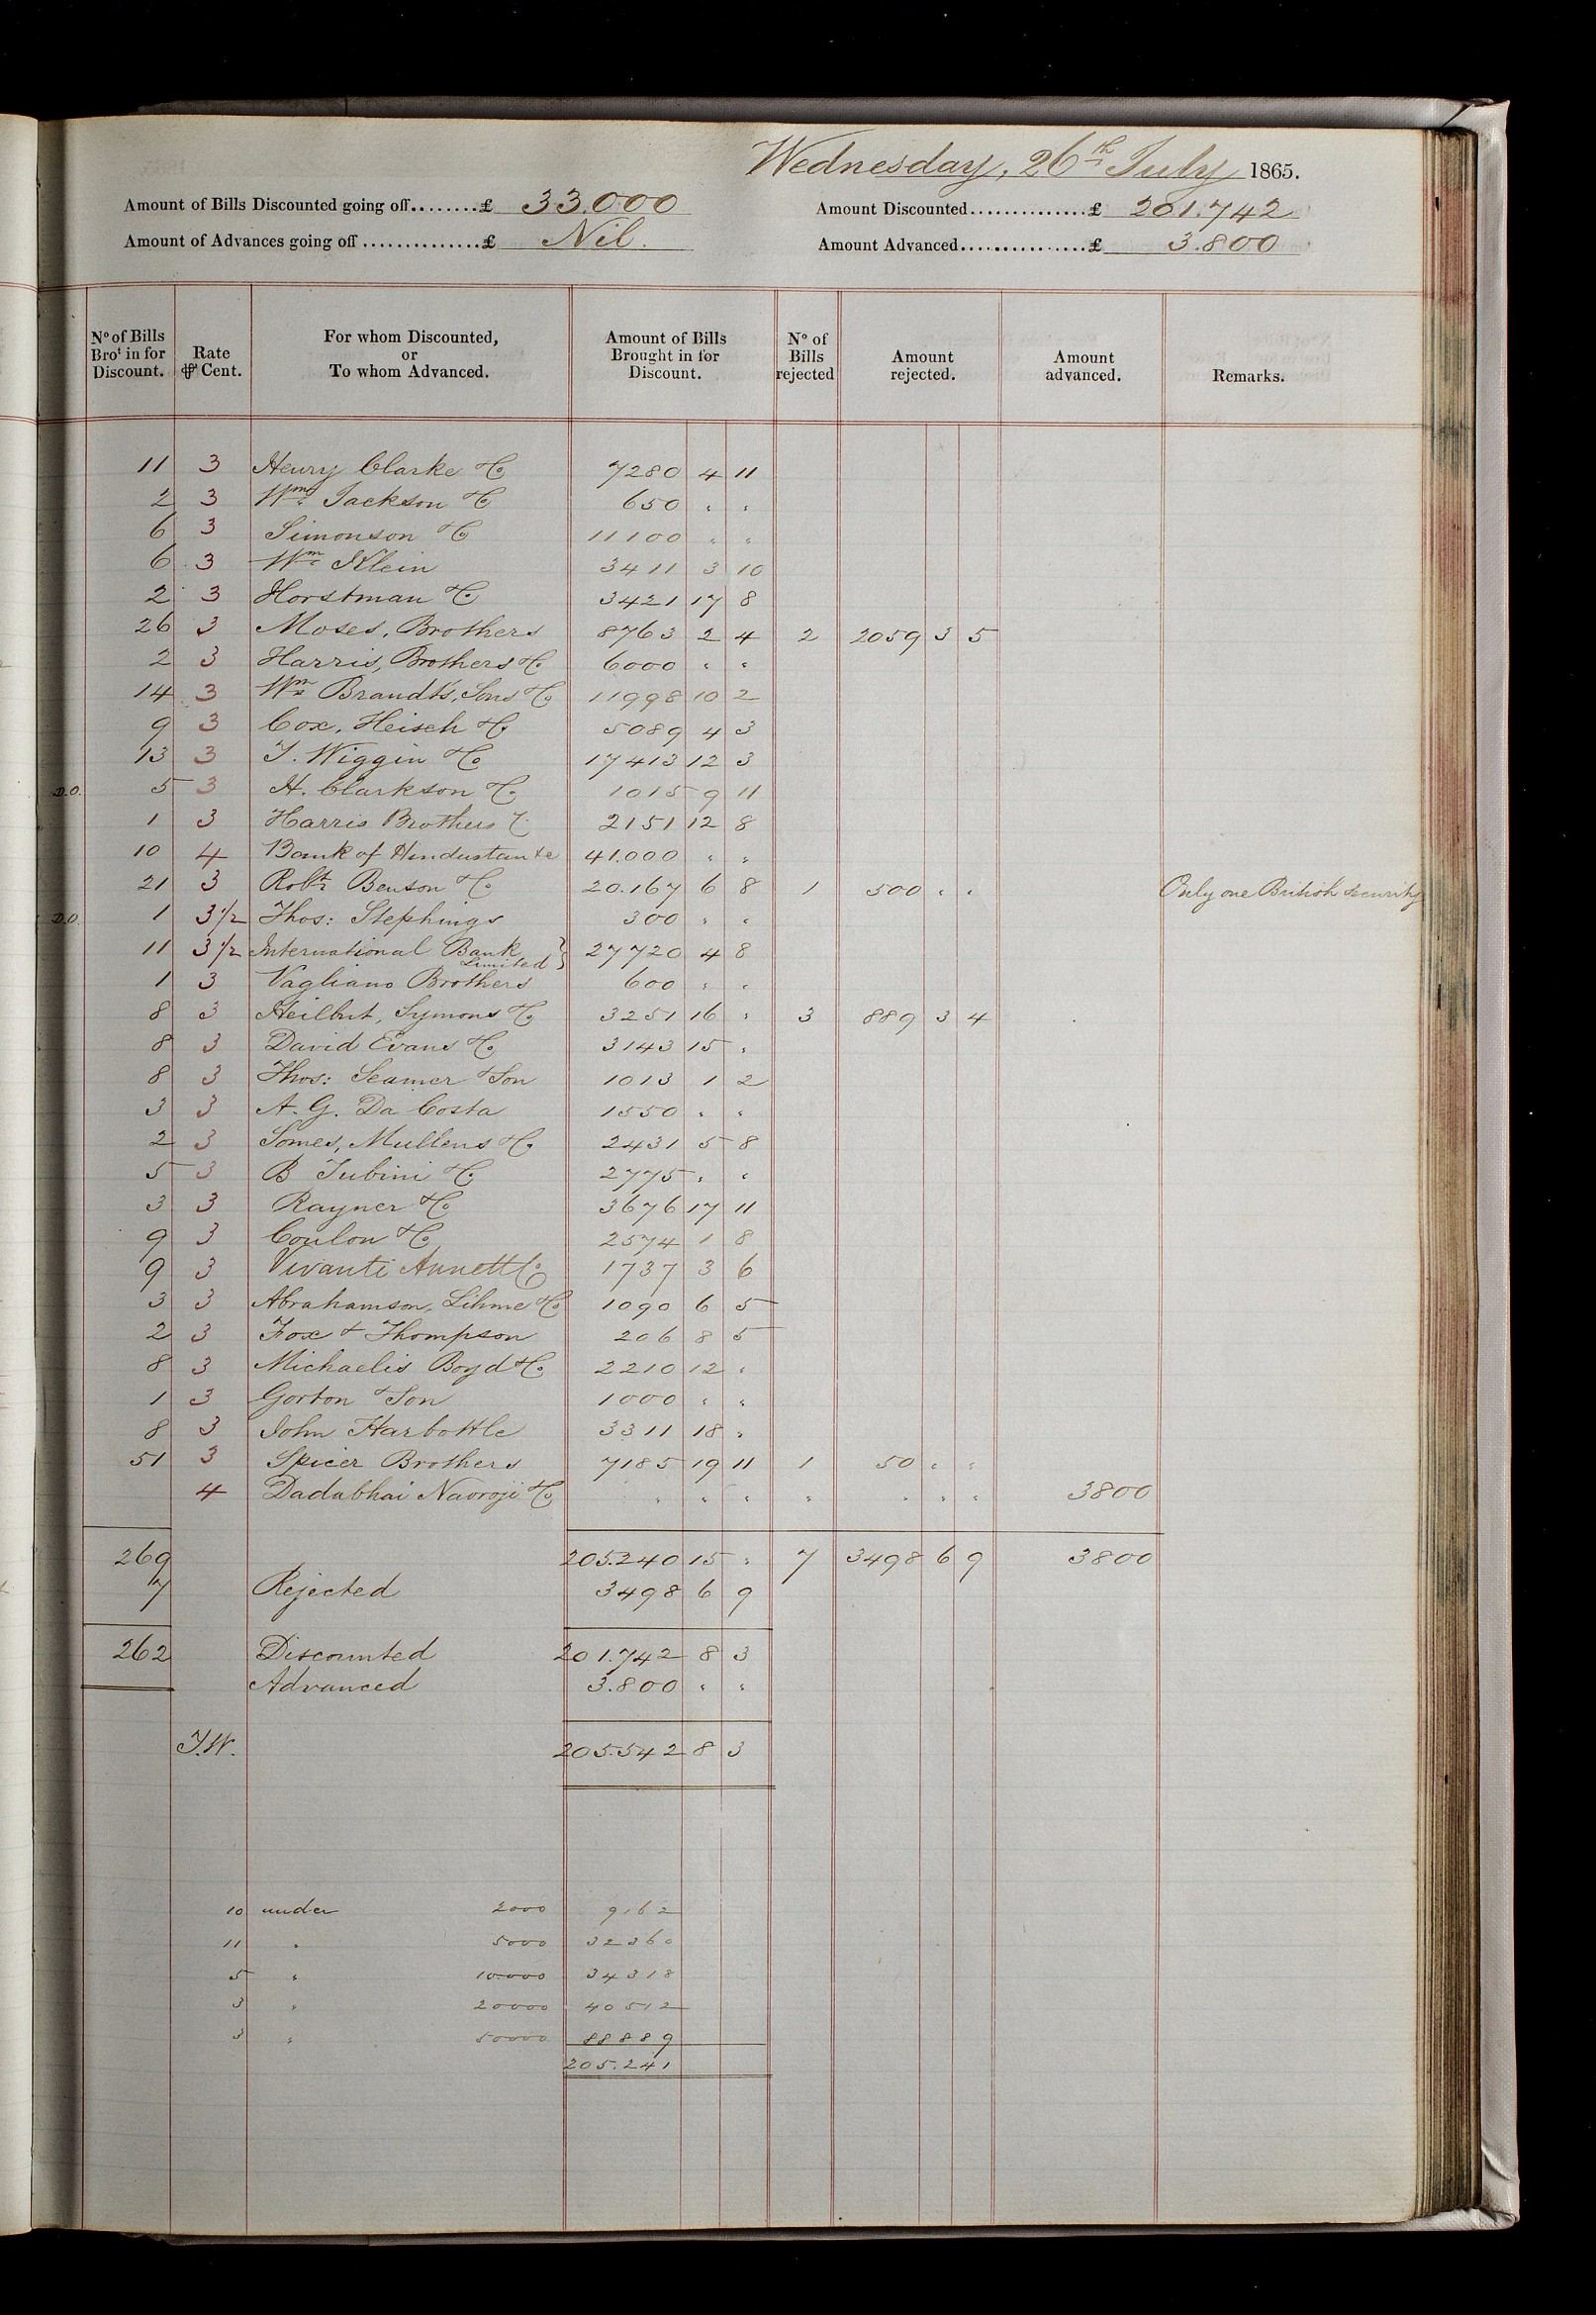 Wednesday, 26th July 1865.
Amount of Bills Discounted going off........£ 33.000
Amount Discounted..............£ 201.742
Amount of Advances going off..............£ Nil.
Amount Advanced................£ 3.800
No of Bills Brot in for Discount. Rate ⅌ Cent. For whom Discounted, or To whom Advanced. Amount of Bills Brought in for Discount. No of Bills rejected Amount rejected. Amount advanced. Remarks.
11 3 Henry Clarke &Co 7280 4 11
2 3 Wm Jackson &Co 650 " "
6 3 Simonson &Co 11100 " "
6 3 Wm Klein 3411 3 10
2 3 Horstman &Co 3421 17 8
26 3 Moses, Brothers 8763 2 4 2 2059 3 5
2 3 Harris, Brothers &Co 6000 " "
14 3 Wm Brandt's, Sons &Co 11998 10 2
9 3 Cox, Heisch &Co 5089 4 3
13 3 T. Wiggin &Co 17413 12 3
D.O. 5 3 H. Clarkson &Co 1015 9 11
1 3 Harris Brothers & 2151 12 8
10 4 Bank of Hindustan &c 41.000 " "
21 3 Robt Benson &Co 20.167 6 8 1 500 " " Only one British security
D.O. 1 3 1/2 Thos: Stephings 300 " "
11 3 1/2 International Bank Limited } 27720 4 8
1 3 Vagliano Brothers 600 " "
8 3 Heilbut, Symons &Co 3251 16 " 3 889 3 4
8 3 David Evans &Co 3143 15 "
8 3 Thos: Seamer &Son 1013 1 2
3 3 A. G. Da Costa 1550 " "
2 3 Somes, Mullens &Co 2431 5 8
5 3 B Tubini &Co 2775 " "
3 3 Rayner &Co 3676 17 11
9 3 Coulon &Co 2574 1 8
9 3 Vivanti Annett Co 1737 3 6
3 3 Abrahamson, Lihme &Co 1090 6 5
2 3 Fox & Thompson 206 8 5
8 3 Michaelis Boyd &Co 2210 12 "
1 3 Gorton &Son 1000 " "
8 3 John Harbottle 3311 18 "
51 3 Spicer Brothers 7185 19 11 1 50 " "
4 Dadabhai Naoroji &Co " " " " " " " 3800
269 205.240 15 " 7 3498 6 9 3800
7 Rejected 3498 6 9
262 Discounted 201.742 8 3
Advanced 3.800 " "
T.W. 205.542 8 3
10 under 2000 9162
11 " 5000 32360
5 " 10.000 34318
3 " 20000 40512
3 " 50000 88889
205.241